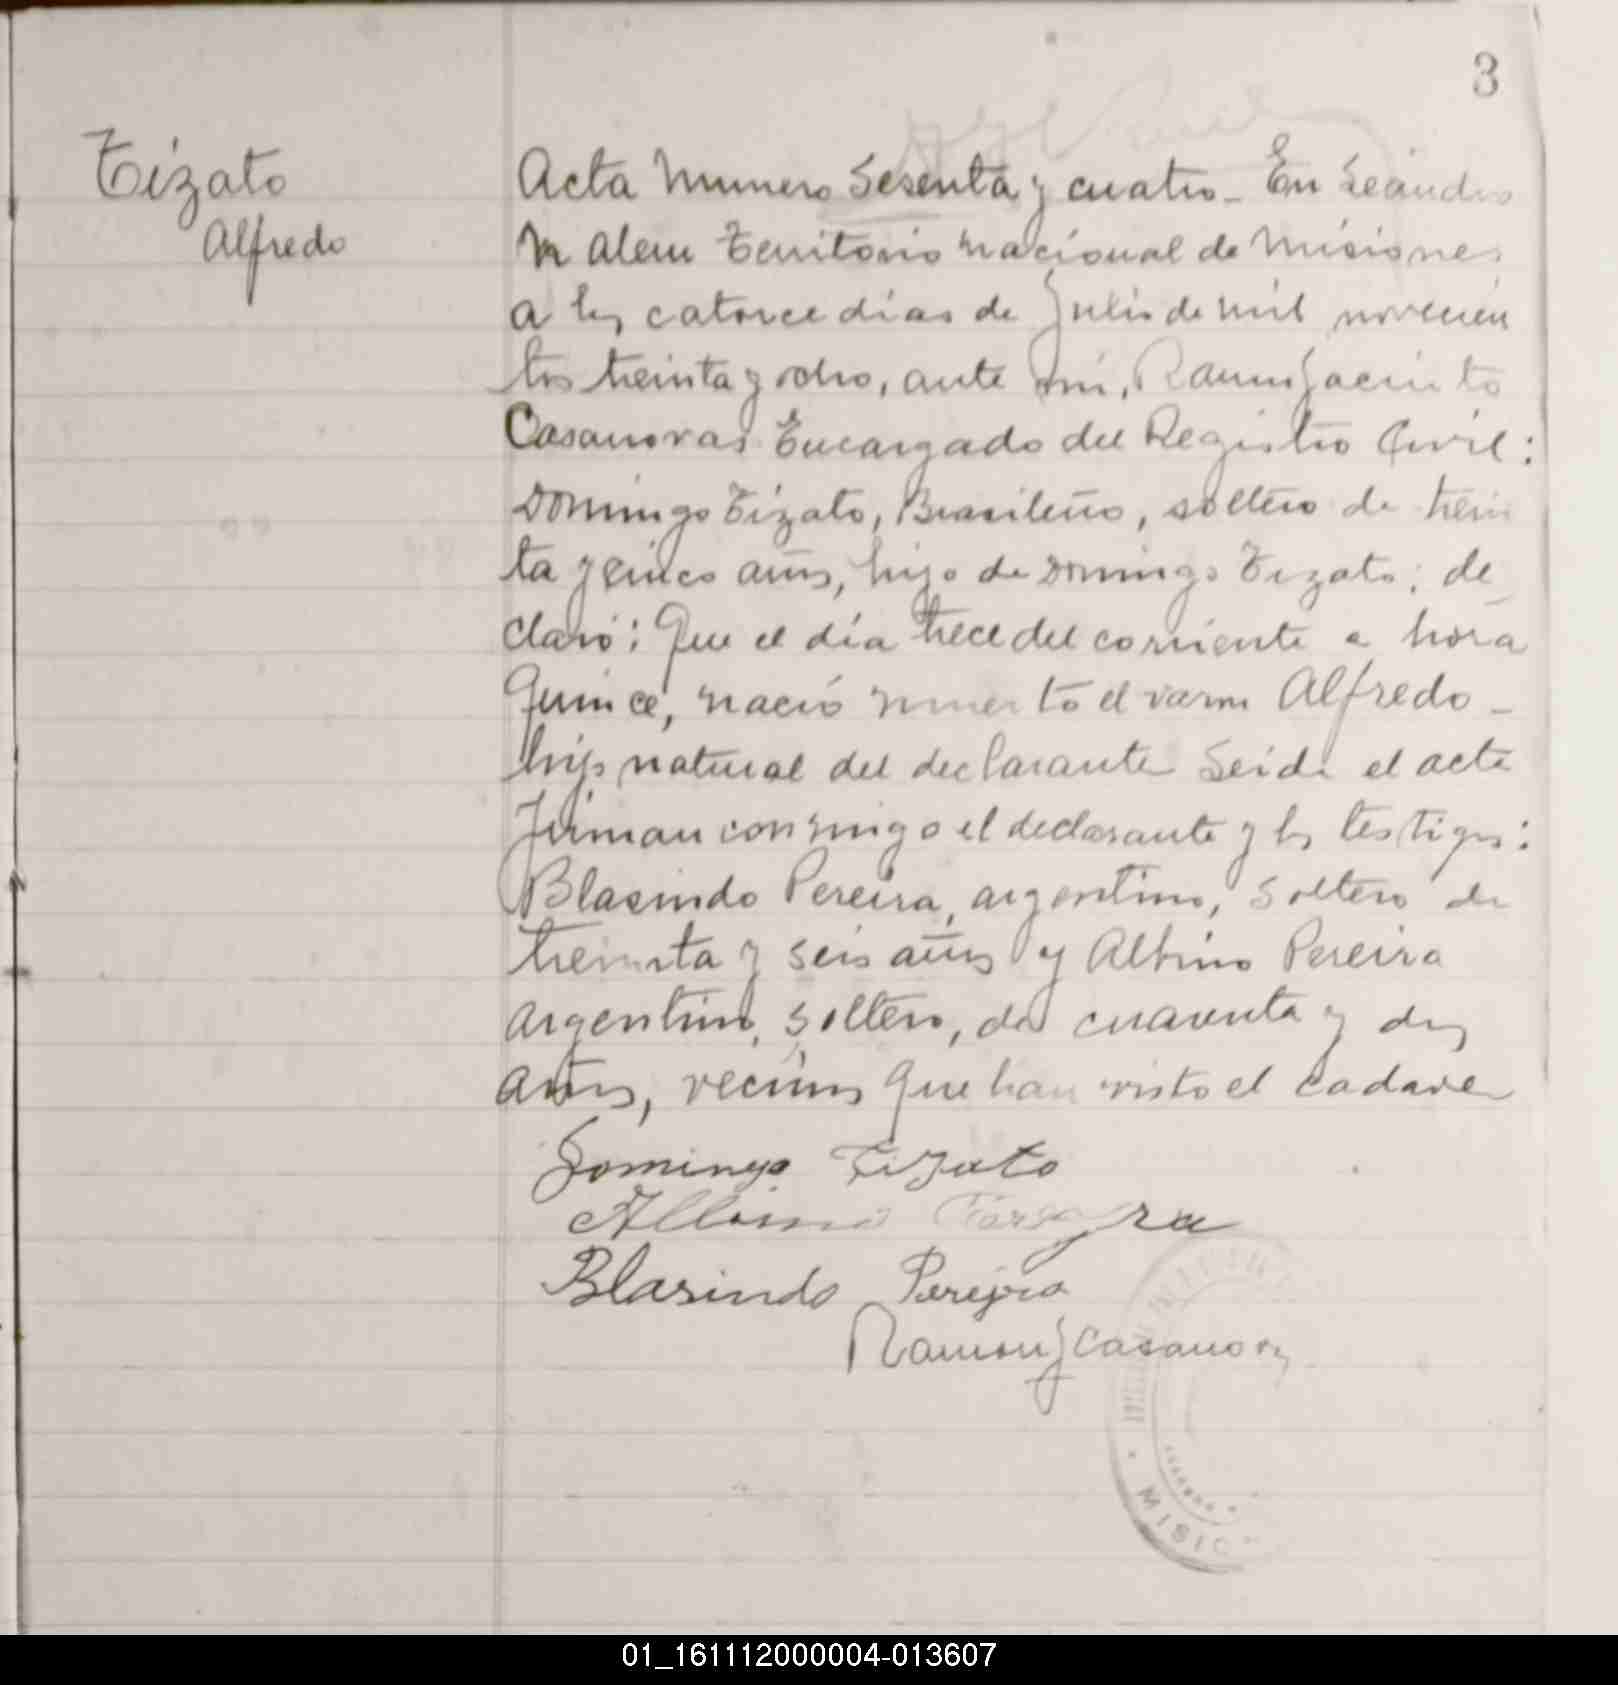 3
Tizato
Alfredo
Acta Numero Sesenta y cuatro_ En Leandro
N Alem Territorio nacional de Misiones
a los catorce días de Julio de mil novecien
tos treinta y ocho, ante mí, Ramon Jacinto
Casanovas Encargado del Registro Civil:
Domingo Tizato, Brasileño, soltero de trein
ta y cinco años, hijo de Domingo Tizato; de_
claró: Que el día trece del corriente a hora
quince, nació muerto el varon Alfredo_
hijo natural del declarante Leida el acta
firman conmigo el declarante y los testigos:
Blasindo Pereira, argentino, soltero de
treinta y seis años y Albino Pereira
argentino, soltero, de cuarenta y dos
años, vecinos que han visto el cadaver
Domingo Tizato
Albino
Blasindo Pereyra
Ramon J Casanovas
MISIO
01_161112000004-013607